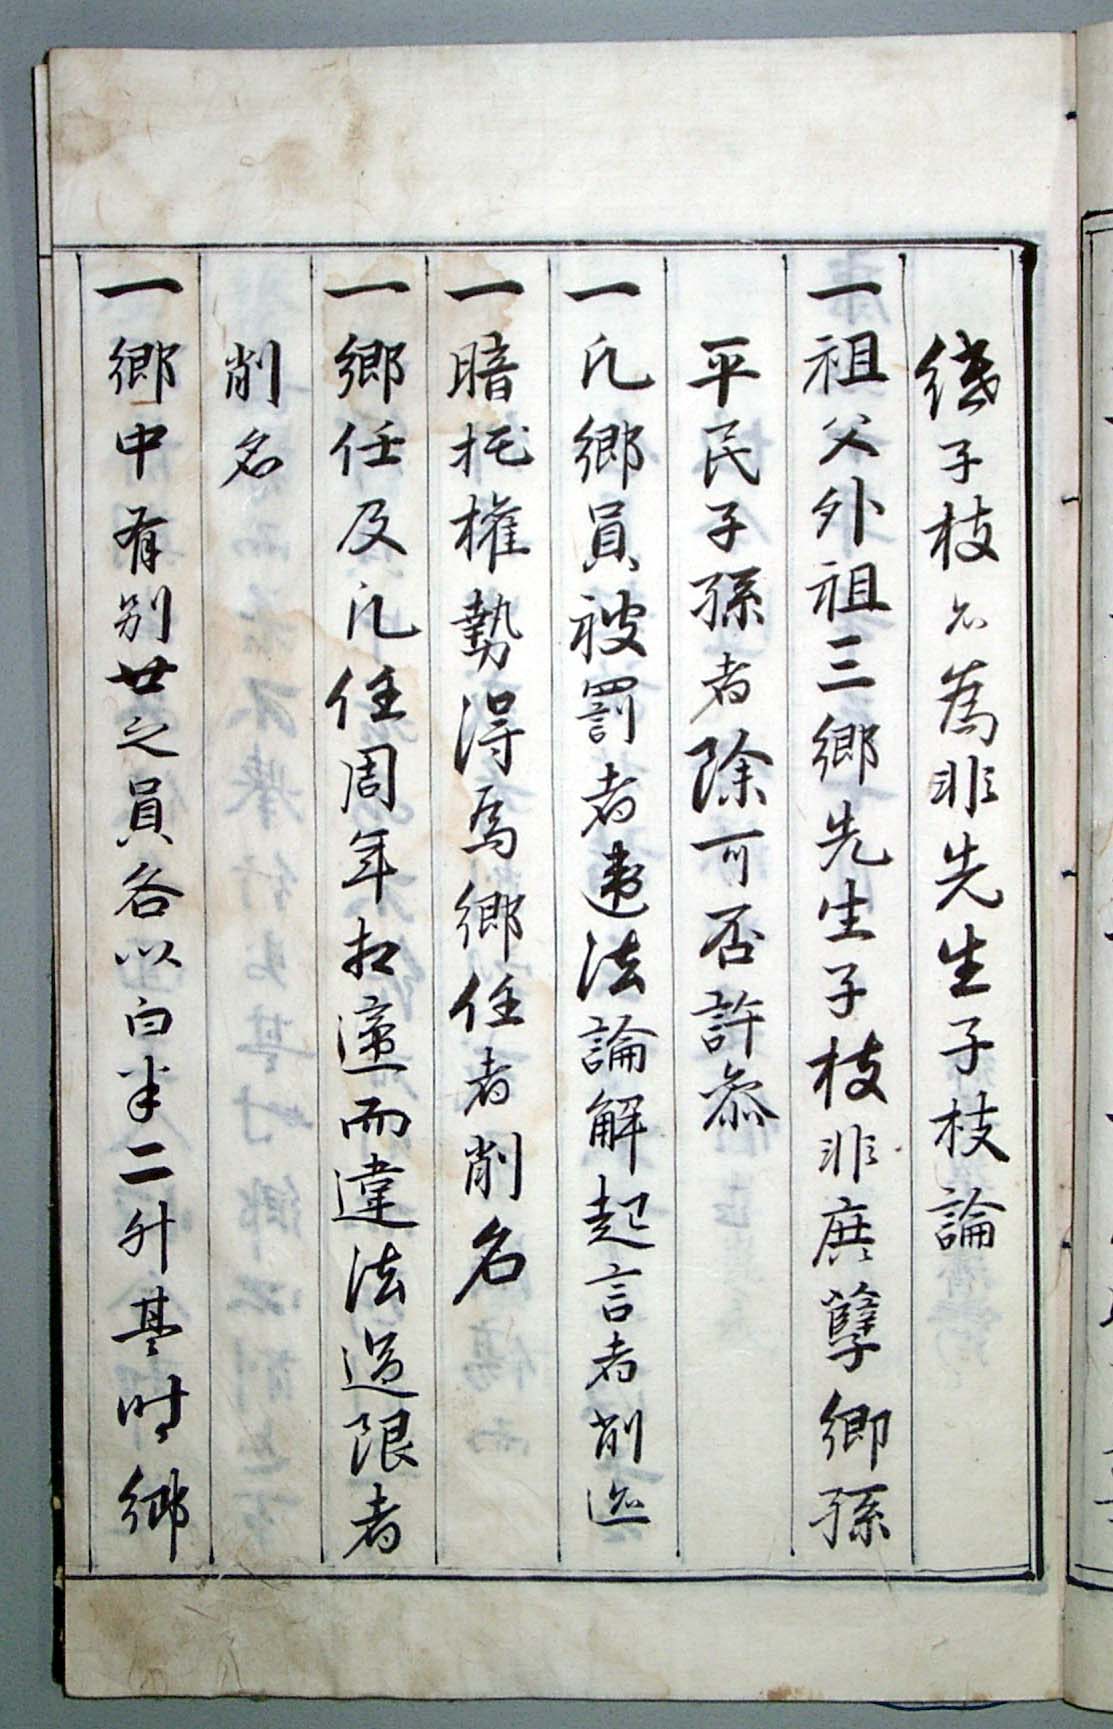 子枝亦為非先生子枝論
一祖父外祖三鄉先生子枝非庶孽鄉孫
平民子孫者除可否許叅
一凡鄉員被罰者違法論解起言者削迹
一暗托權勢得為鄉任者削名
一鄉任及凡任周年相遆而違法過限者
削名
一鄉中有別廿之員各以白米二升基時鄉